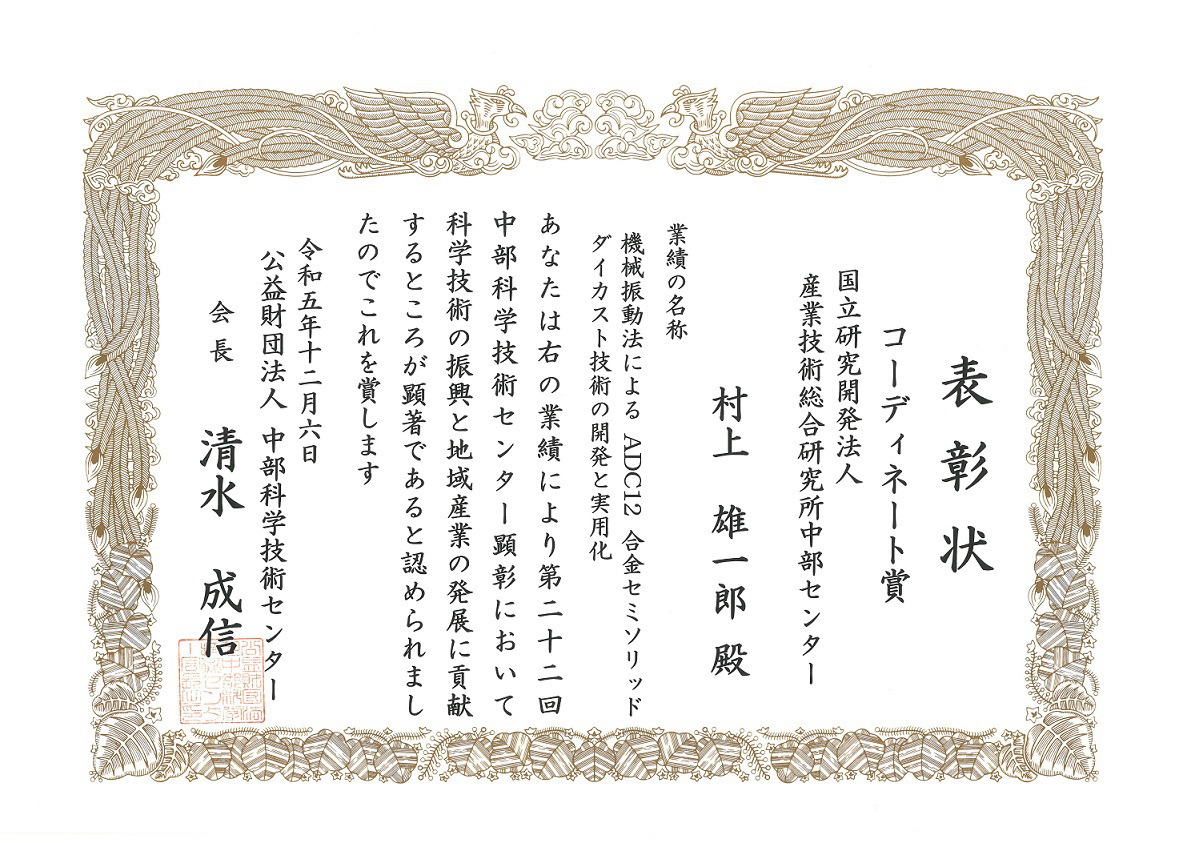 表彰状
コーディネート賞
国立研究開発法人
産業技術総合研究所中部センター
村上 雄一郎 殿
業績の名称
機械振動法による ADC12 合金セミソリッド
ダイカスト技術の開発と実用化
あなたは右の業績により第二十二回
中部科学技術センター顕彰において
科学技術の振興と地域産業の発展に貢献
するところが顕著であると認められまし
たのでこれを賞します
令和五年十二月六日
公益財団法人 中部科学技術センター
会長 清水 成信